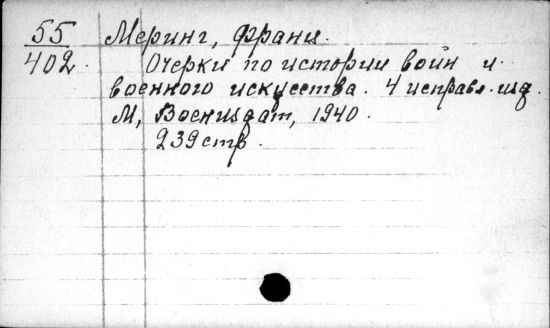 55 Меринг, Франц.
402. Очерки по истории войн и
военного искусства. 4 исправл. изд.
М, Воениздат, 1940.
239 стр.